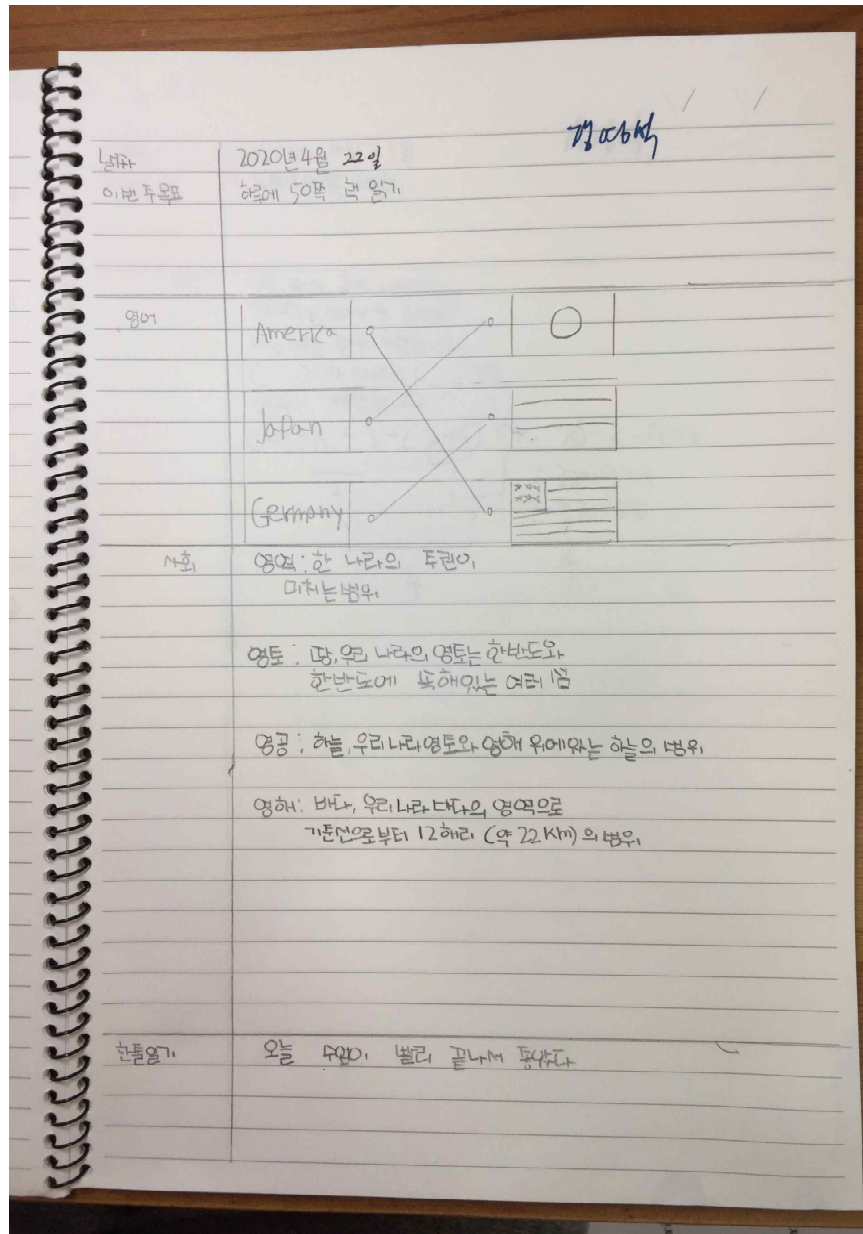 날짜 2020년 4월 22일
이번 주 목표 하루에 50쪽 책 읽기
영어
America
Japan
Germany
사회 영역 : 한 나라의 주권이
미치는 범위
영토 : 땅, 우리 나라의 영토는 한반도와
한반도에 속해있는 여러 섬
영공 : 하늘, 우리나라 영토와 영해 위에 있는 하늘의 범위
영해 : 바다, 우리나라 바다의 영역으로
기준선으로부터 12해리 (약 22km)의 범위
한줄일기 오늘 수업이 빨리 끝나서 좋았다